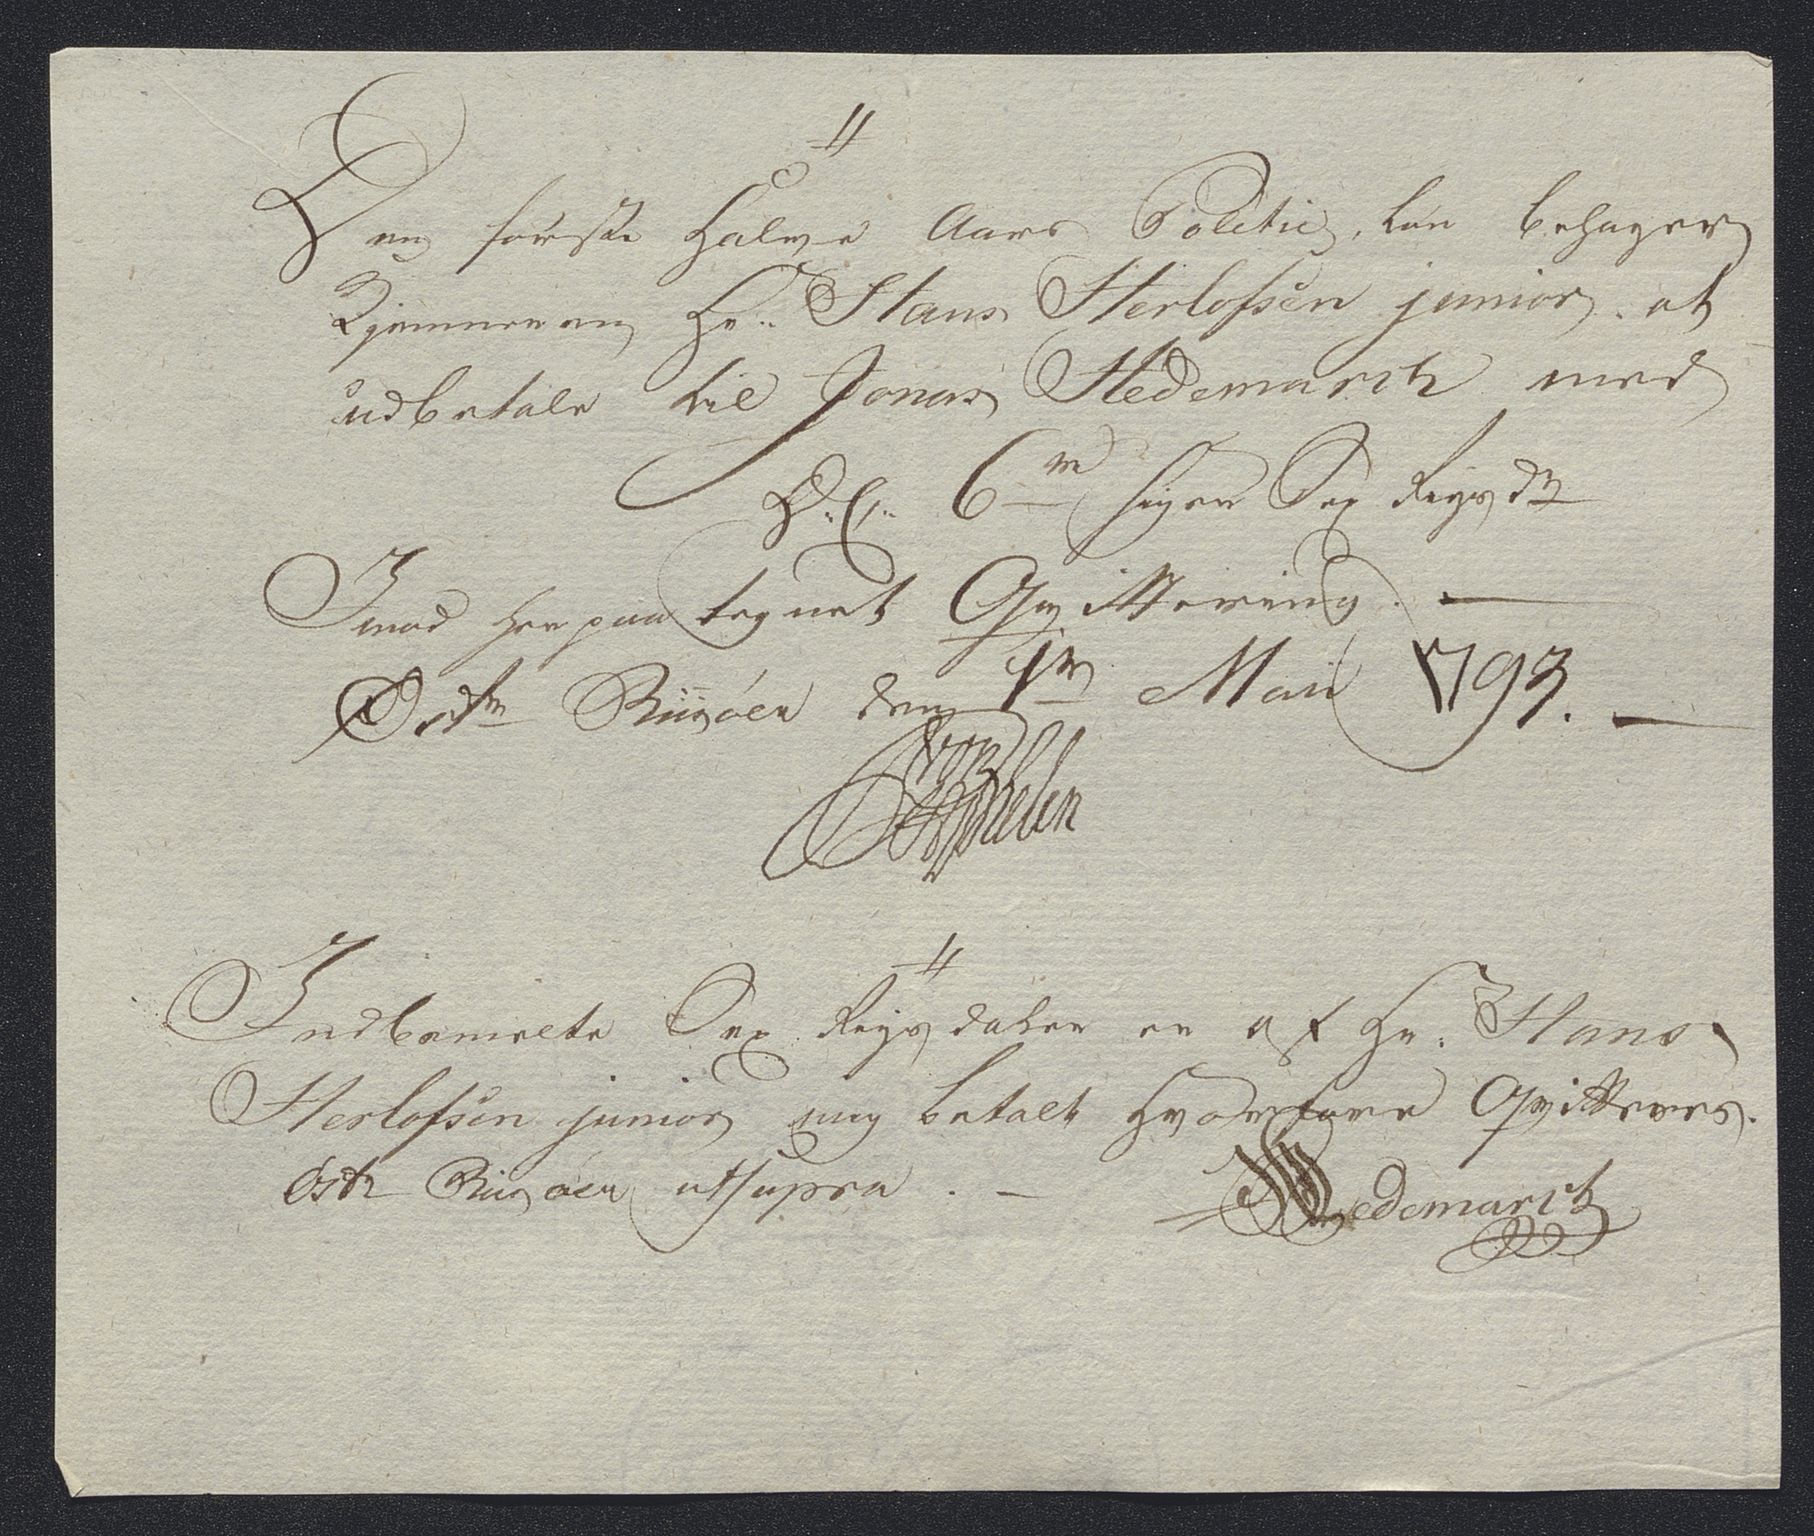 Den første Halve Aars Politie, løn behager
Kjemneren Hr. Hans Herlofsen junior, at
udbetale til Jonas Hedemarck med
6 rd siger Sex Rigsdr
Imod herpaa tegnet Qvittering. —
Ostr Riisøer den 1te Maii 1793. —
von
Indbemelte Sex Rigsdaler er af Hr. Hans
Herlofsen junior mig betalt hvorfore Qvitteres.
Østr Riisøer ut supra. —
Hedemarck